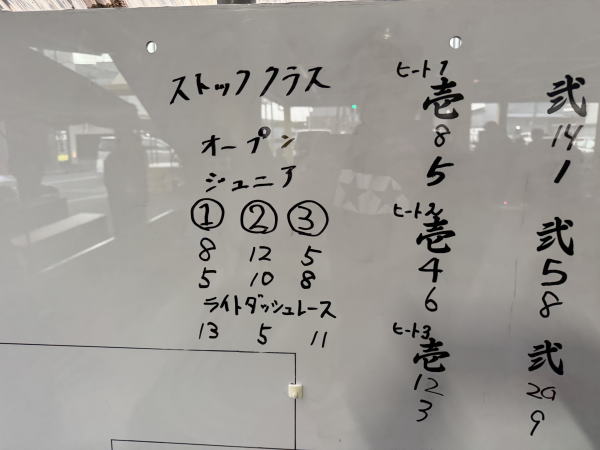 ストッククラス
オープン
ジュニア
① ② ③
8 12 5
5 10 8
ライトダッシュレース
13 5 11
ヒート1
壱 弐
8 14
5 1
ヒート2
壱 弐
4 5
6 8
ヒート3
壱 弐
12 20
3 9